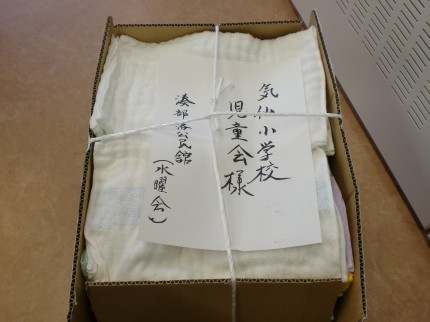 気仙小学校
児童会様
湊部落公民館
(水曜会)